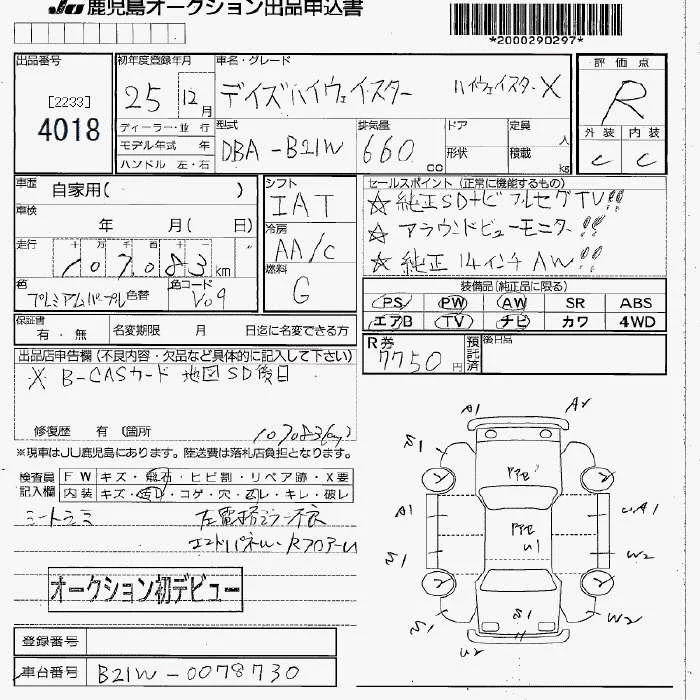 JU 鹿児島オークション出品申込書
*2000290297*
出品番号
[2233]
4018
初年度登録年月
25 12月
車名・グレード
デイズハイウェイスター ハイウェイスターX
評価点
R
外装 内装
C C
ディーラー・並行
モデル年式 年
ハンドル 左・右
型式
DBA-B21W
排気量
660 cc
ドア
形状
定員 人
積載 kg
車歴 自家用( )
車検 年 月( 日)
走行 十 万 千 百 十
107083 km
色 プレミアムパープル 色替
色コード V09
シフト
IAT
冷房
AA/C
燃料
G
セールスポイント (正常に機能するもの)
☆ 純正SDナビ フルセグTV!!
☆ アラウンドビューモニター!!
☆ 純正14インチAW!!
装備品(純正品に限る)
PS PW AW SR ABS
エアB TV ナビ カワ 4WD
保証書 有・無
名変期限 月 日迄に名変できる方
R券 7750円
預託済
後日品
出品店申告欄(不良内容・欠品など具体的に記入して下さい)
X B-CASカード 地図SD後日
修復歴 有 (箇所
107083km)
※現車はJU鹿児島にあります。陸送費は落札店負担となります。
検査員記入欄
FW キズ・飛石・ヒビ割・リペア跡・X要
内装 キズ・汚れ・コゲ・穴・スレ・キレ・破レ
シートシミ 左電格ミラー不良
エンドパネルW・Rフロアーu
オークション初デビュー
登録番号
車台番号 B21W-0078730
A1 A2
S1
2 2
アセ
A1 UA1
アセ
U1
S1 W2
2 2
S1 S1 W2
U2